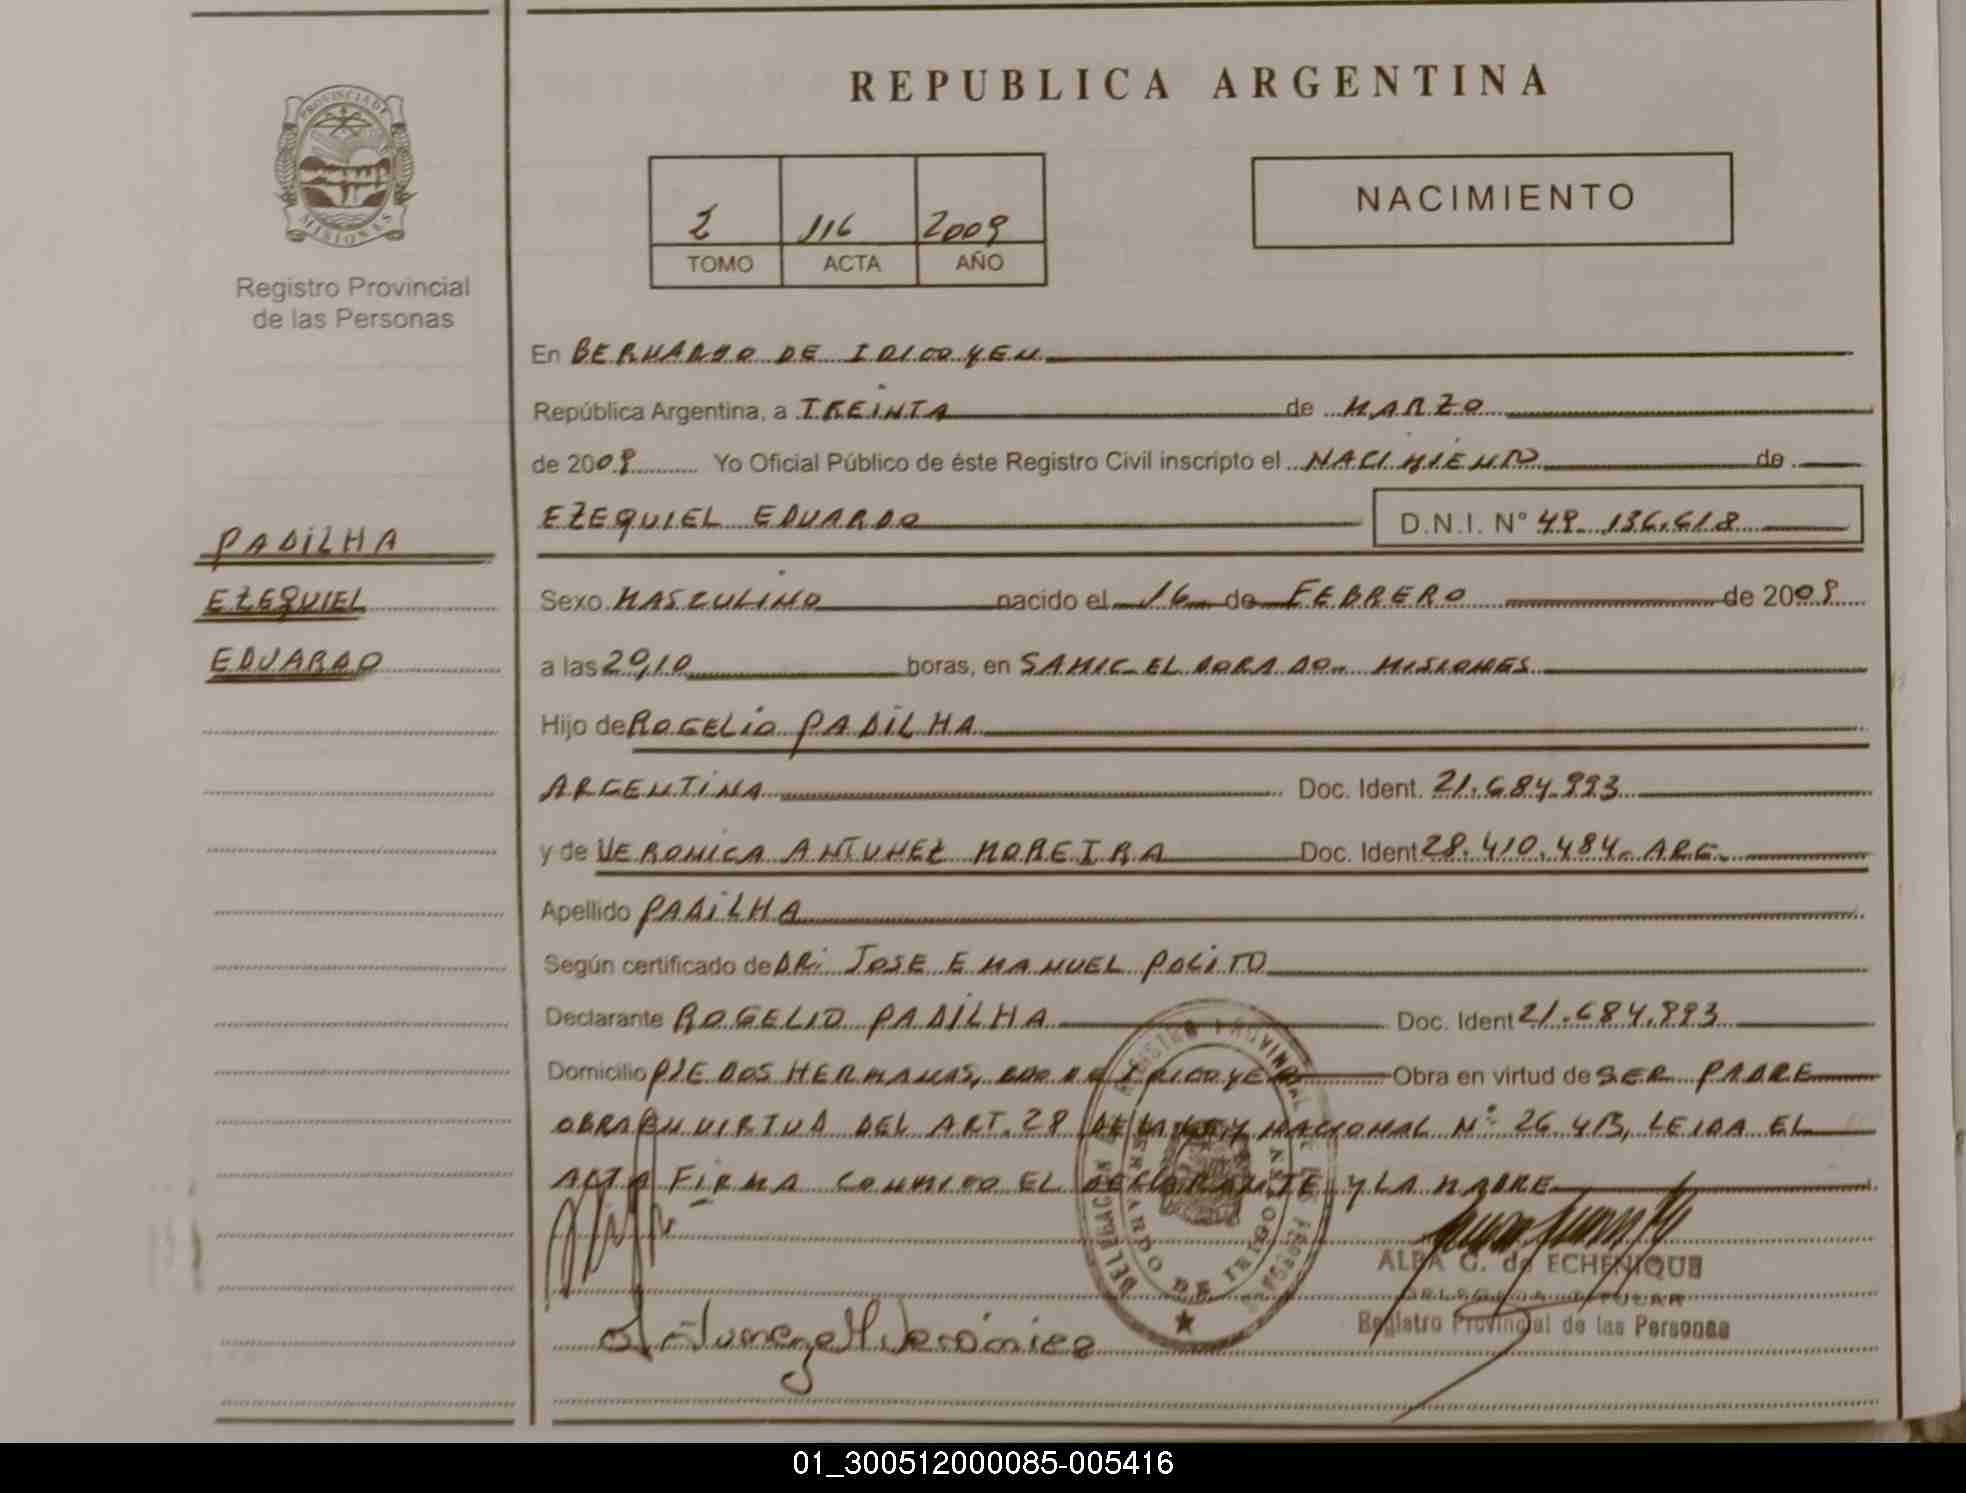 PROVINCIA DE
MISIONES
Registro Provincial
de las Personas
PADILHA
EZEQUIEL
EDUARDO
REPUBLICA ARGENTINA
2 116 2009
TOMO ACTA AÑO
NACIMIENTO
En BERNARDO DE IRIGOYEN
República Argentina, a TREINTA de MARZO
de 2009 Yo Oficial Público de éste Registro Civil inscripto el NACIMIENTO de
EZEQUIEL EDUARDO D.N.I. N° 49.136.618
Sexo MASCULINO nacido el 16 de FEBRERO de 2009
a las 20,10 horas, en SAMIC ELDORADO - MISIONES
Hijo de ROGELIO PADILHA
ARGENTINA Doc. Ident. 21.684.993
y de VERONICA ANTUNEZ MOREIRA Doc. Ident 28.410.484 - ARG.
Apellido PADILHA
Según certificado de DR: JOSE EMANUEL POLITO
Declarante ROGELIO PADILHA Doc. Ident 21.684.993
Domicilio PJE DOS HERMANAS, BDO DE IRIGOYEN Obra en virtud de SER PADRE
OBRA EN VIRTUD DEL ART. 28 DE LA LEY NACIONAL N° 26.413, LEIDA EL
ACTA FIRMA CONMIGO EL DECLARANTE Y LA MADRE
ALBA G. de ECHENIQUE
DELEGADA TITULAR
Registro Provincial de las Personas
Antunez M Veronica
01_300512000085-005416